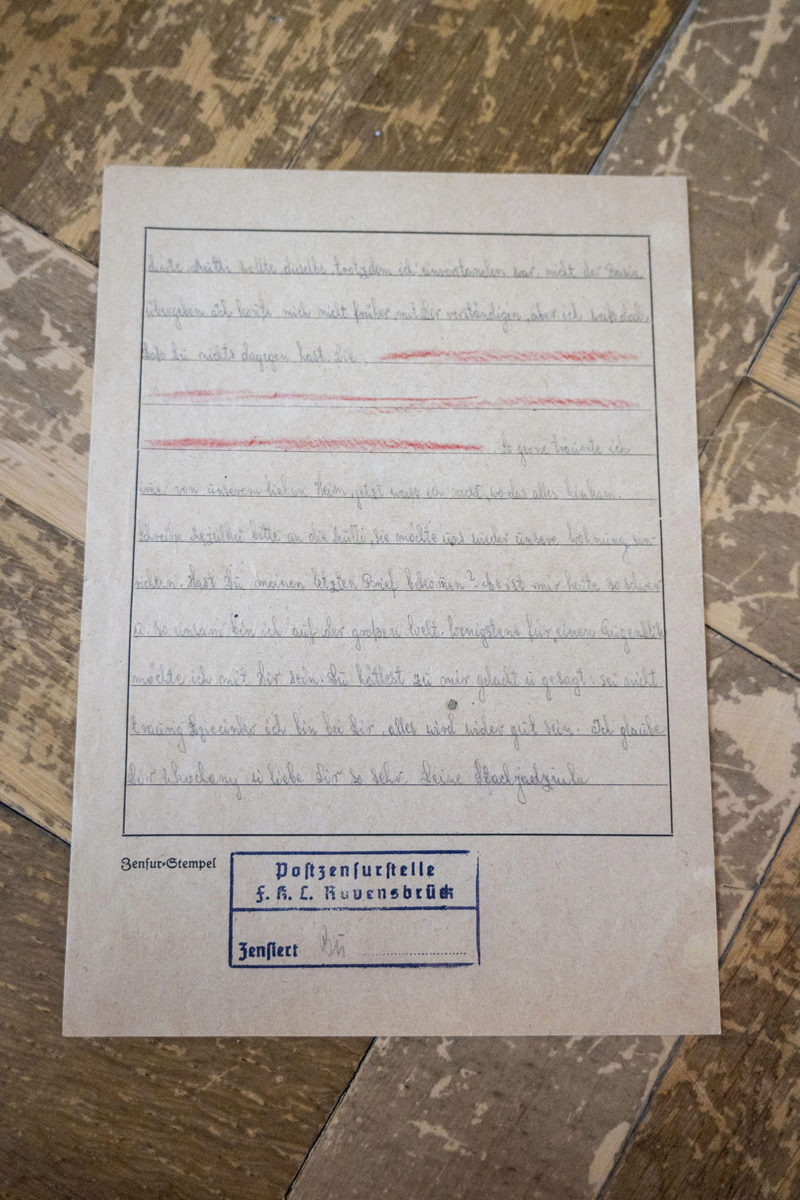 Mutti wollte dieselbe, trotzdem ich einverstanden war, nicht der Basia
übergeben. Ich konnte mich nicht früher mit Dir verständigen, aber ich weiß doch,
daß Du nichts dagegen hast. Die
So gerne träumte ich
von unserem lieben Heim, jetzt weiss ich nicht, wo das alles hinkam.
Schreibe bitte an die Mutti, sie möchte uns wieder unsere Wohnung ein-
richten. Hast Du meinen letzten Brief bekomen? Es ist mir heute so schwer
u so einsam bin ich auf der großen Welt. Wenigstens für einen Augenblik
möchte ich mit Dir sein. Du hättest zu mir gelacht u gesagt: sei nicht
traurig ich bin bei Dir, alles wird wider gut sein. Ich glaube
Dir Kochany u liebe Dir so sehr. Deine
Zensur-Stempel
Postzensurstelle
F. K. L. Ravensbrück
Zensiert